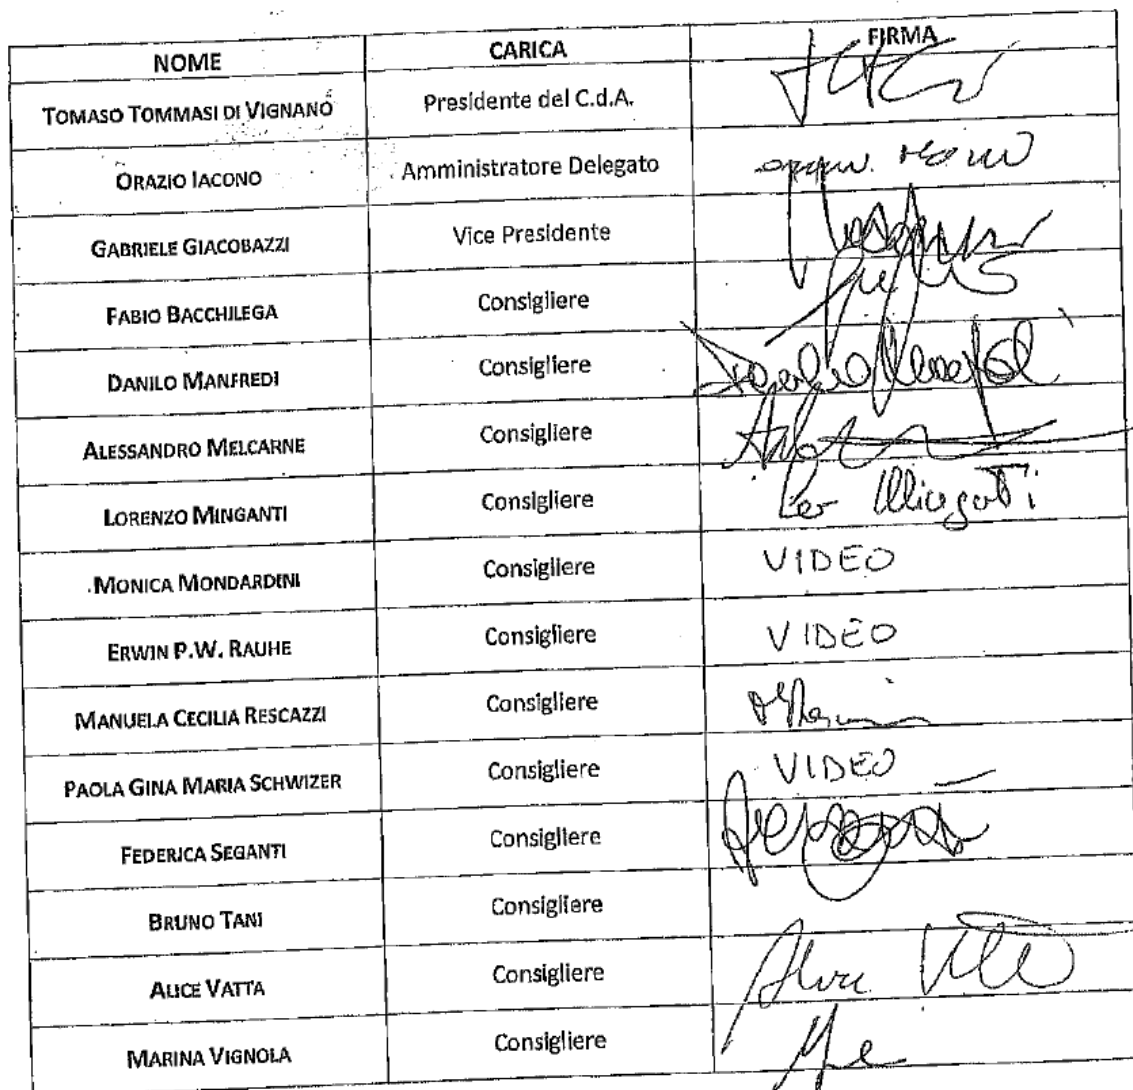 NOME CARICA FIRMA
TOMASO TOMMASI DI VIGNANO Presidente del C.d.A.
ORAZIO IACONO Amministratore Delegato
GABRIELE GIACOBAZZI Vice Presidente
FABIO BACCHILEGA Consigliere
DANILO MANFREDI Consigliere
ALESSANDRO MELCARNE Consigliere
LORENZO MINGANTI Consigliere Minganti
MONICA MONDARDINI Consigliere VIDEO
ERWIN P.W. RAUHE Consigliere VIDEO
MANUELA CECILIA RESCAZZI Consigliere
PAOLA GINA MARIA SCHWIZER Consigliere VIDEO
FEDERICA SEGANTI Consigliere
BRUNO TANI Consigliere
ALICE VATTA Consigliere
MARINA VIGNOLA Consigliere